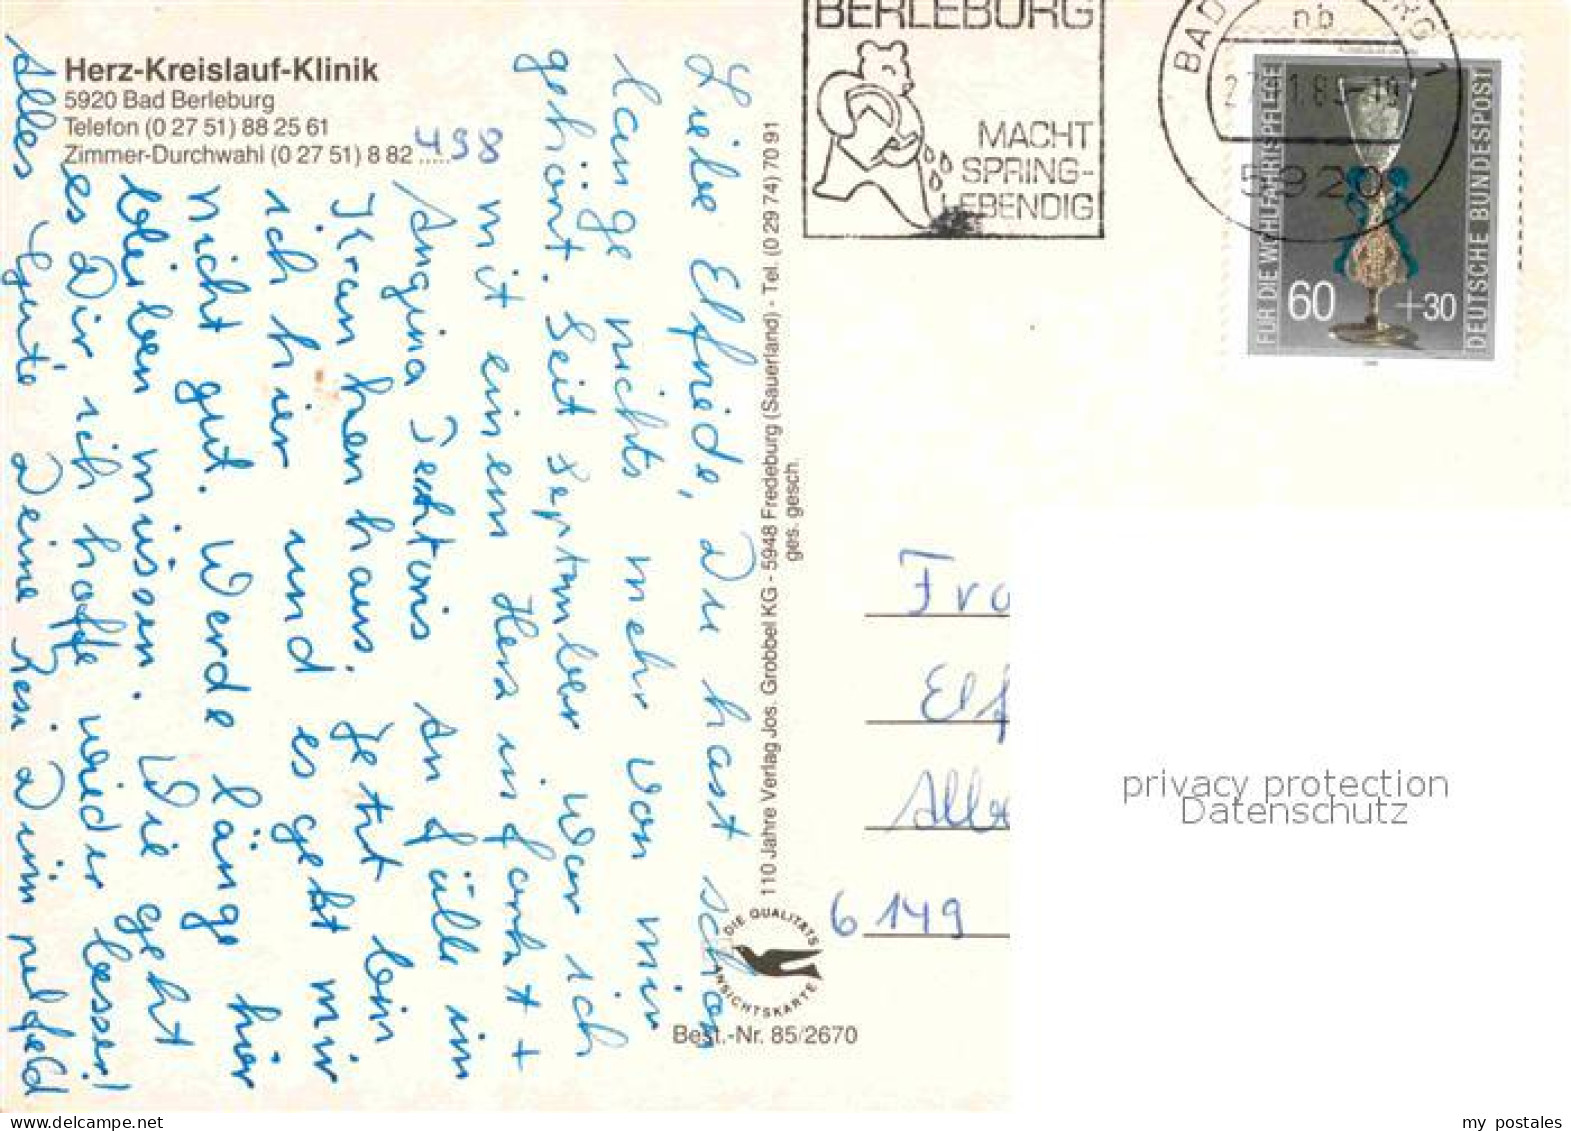 Herz-Kreislauf-Klinik
5920 Bad Berleburg
Telefon (0 27 51) 88 25 61
Zimmer-Durchwahl (0 27 51) 8 82 498
Liebe Elfriede, Du hast schon
lange nichts mehr von mir
gehört. Seit September war ich
mit einem Herzinfarkt +
Angina Pectoris Anfälle im
Krankenhaus. Jetzt bin
ich hier und es geht mir
nicht gut. Werde länge hier
bleiben müssen. Wie geht
es Dir ich hoffe wieder besser!
Alles Gute Deine Resi
110 Jahre Verlag Jos. Grobbel KG - 5948 Fredeburg (Sauerland) - Tel. (0 29 74) 70 91
ges. gesch.
DIE QUALITÄTS
ANSICHTSKARTE
Best.-Nr. 85/2670
BERLEBURG
MACHT
SPRING-
LEBENDIG
BAD
nb
1
5920
FÜR DIE WOHLFAHRTSPFLEGE
60
+30
DEUTSCHE BUNDESPOST
Fra
Elf
Alle
6149
privacy protection
Datenschutz
my_postales